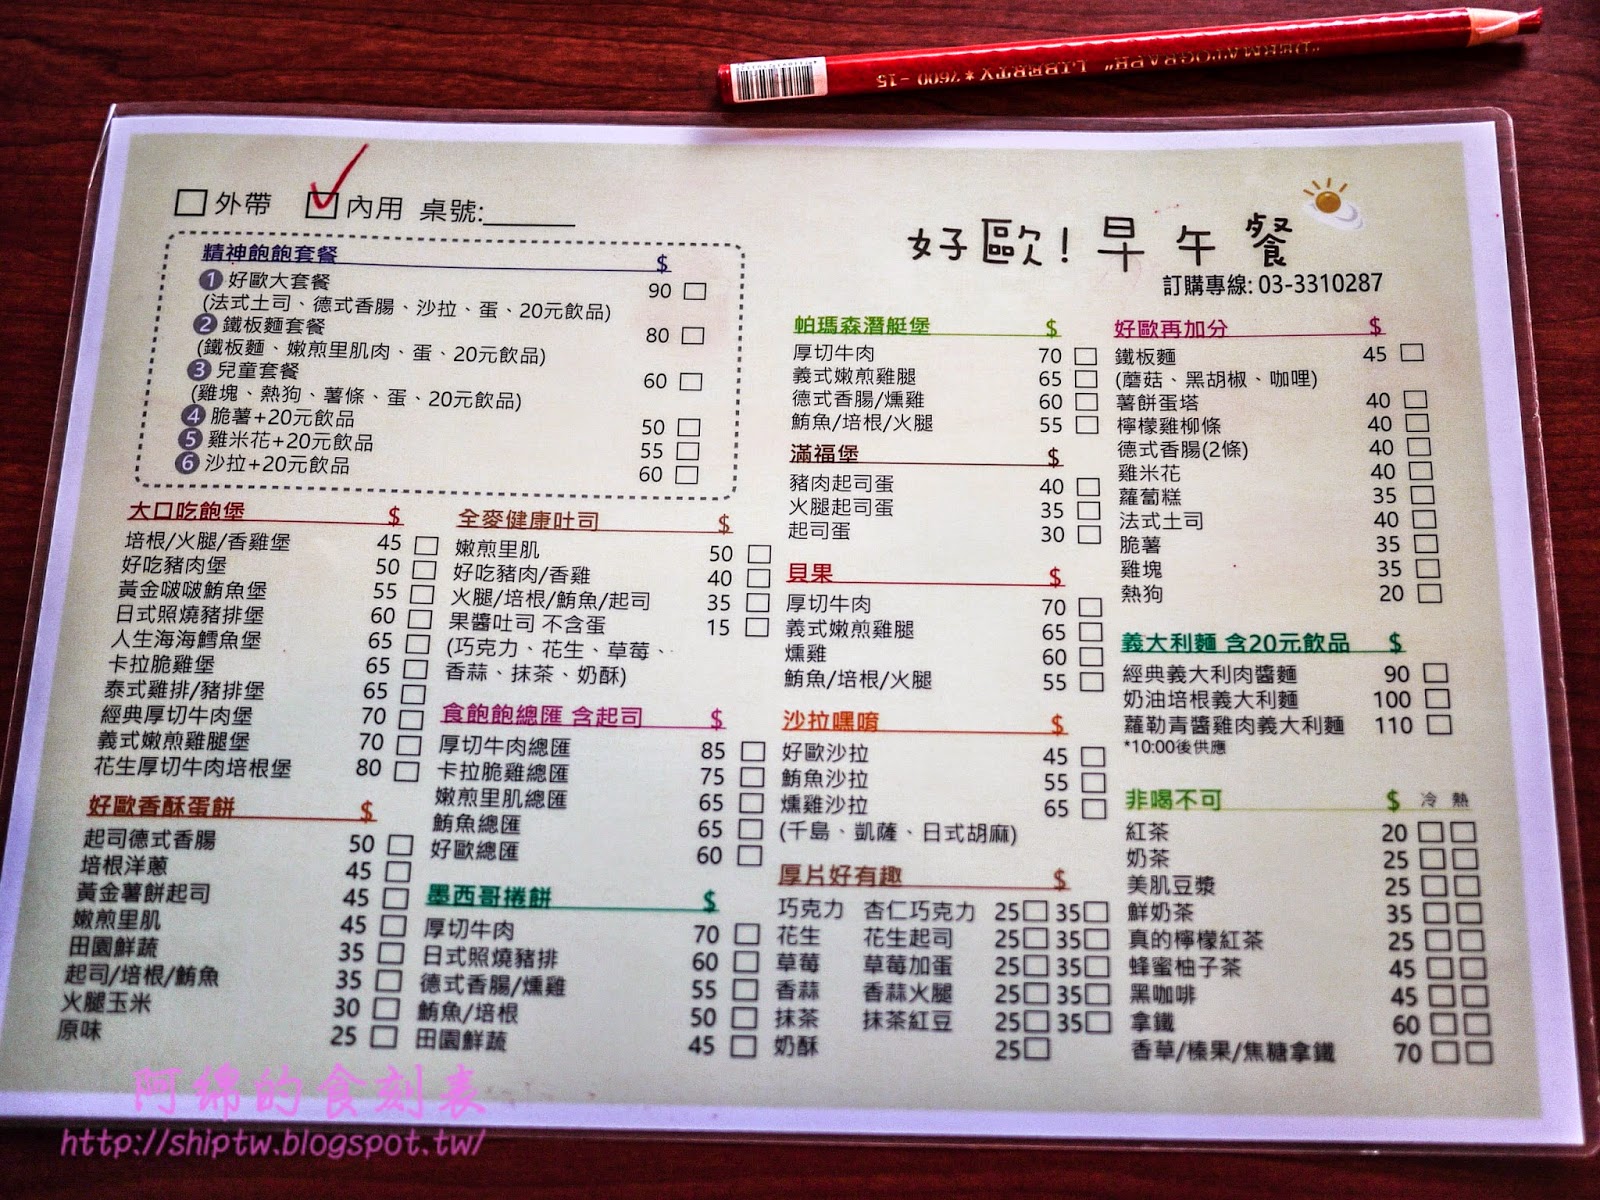 "DERMATOGRAPH" LIBERTY * 7600 - 15
外帶 內用 桌號:
好歐!早午餐
訂購專線: 03-3310287
精神飽飽套餐 $
1 好歐大套餐 90
(法式土司、德式香腸、沙拉、蛋、20元飲品)
2 鐵板麵套餐 80
(鐵板麵、嫩煎里肌肉、蛋、20元飲品)
3 兒童套餐 60
(雞塊、熱狗、薯條、蛋、20元飲品)
4 脆薯+20元飲品 50
5 雞米花+20元飲品 55
6 沙拉+20元飲品 60
大口吃飽堡 $
培根/火腿/香雞堡 45
好吃豬肉堡 50
黃金啵啵鮪魚堡 55
日式照燒豬排堡 60
人生海海鱈魚堡 65
卡拉脆雞堡 65
泰式雞排/豬排堡 65
經典厚切牛肉堡 70
義式嫩煎雞腿堡 70
花生厚切牛肉培根堡 80
好歐香酥蛋餅 $
起司德式香腸 50
培根洋蔥 45
黃金薯餅起司 45
嫩煎里肌 45
田園鮮蔬 35
起司/培根/鮪魚 35
火腿玉米 30
原味 25
全麥健康吐司 $
嫩煎里肌 50
好吃豬肉/香雞 40
火腿/培根/鮪魚/起司 35
果醬吐司 不含蛋 15
(巧克力、花生、草莓、
香蒜、抹茶、奶酥)
食飽飽總匯 含起司 $
厚切牛肉總匯 85
卡拉脆雞總匯 75
嫩煎里肌總匯 65
鮪魚總匯 65
好歐總匯 60
墨西哥捲餅 $
厚切牛肉 70
日式照燒豬排 60
德式香腸/燻雞 55
鮪魚/培根 50
田園鮮蔬 45
帕瑪森潛艇堡 $
厚切牛肉 70
義式嫩煎雞腿 65
德式香腸/燻雞 60
鮪魚/培根/火腿 55
滿福堡 $
豬肉起司蛋 40
火腿起司蛋 35
起司蛋 30
貝果 $
厚切牛肉 70
義式嫩煎雞腿 65
燻雞 60
鮪魚/培根/火腿 55
沙拉嘿唷 $
好歐沙拉 45
鮪魚沙拉 55
燻雞沙拉 65
(千島、凱薩、日式胡麻)
厚片好有趣 $
巧克力 杏仁巧克力 25 35
花生 花生起司 25 35
草莓 草莓加蛋 25 35
香蒜 香蒜火腿 25 35
抹茶 抹茶紅豆 25 35
奶酥 25
好歐再加分 $
鐵板麵 45
(蘑菇、黑胡椒、咖哩)
薯餅蛋塔 40
檸檬雞柳條 40
德式香腸(2條) 40
雞米花 40
蘿蔔糕 35
法式土司 40
脆薯 35
雞塊 35
熱狗 20
義大利麵 含20元飲品 $
經典義大利肉醬麵 90
奶油培根義大利麵 100
蘿勒青醬雞肉義大利麵 110
*10:00後供應
非喝不可 $ 冷 熱
紅茶 20
奶茶 25
美肌豆漿 25
鮮奶茶 35
真的檸檬紅茶 25
蜂蜜柚子茶 45
黑咖啡 45
拿鐵 60
香草/榛果/焦糖拿鐵 70
阿綿的食刻表
http://shiptw.blogspot.tw/